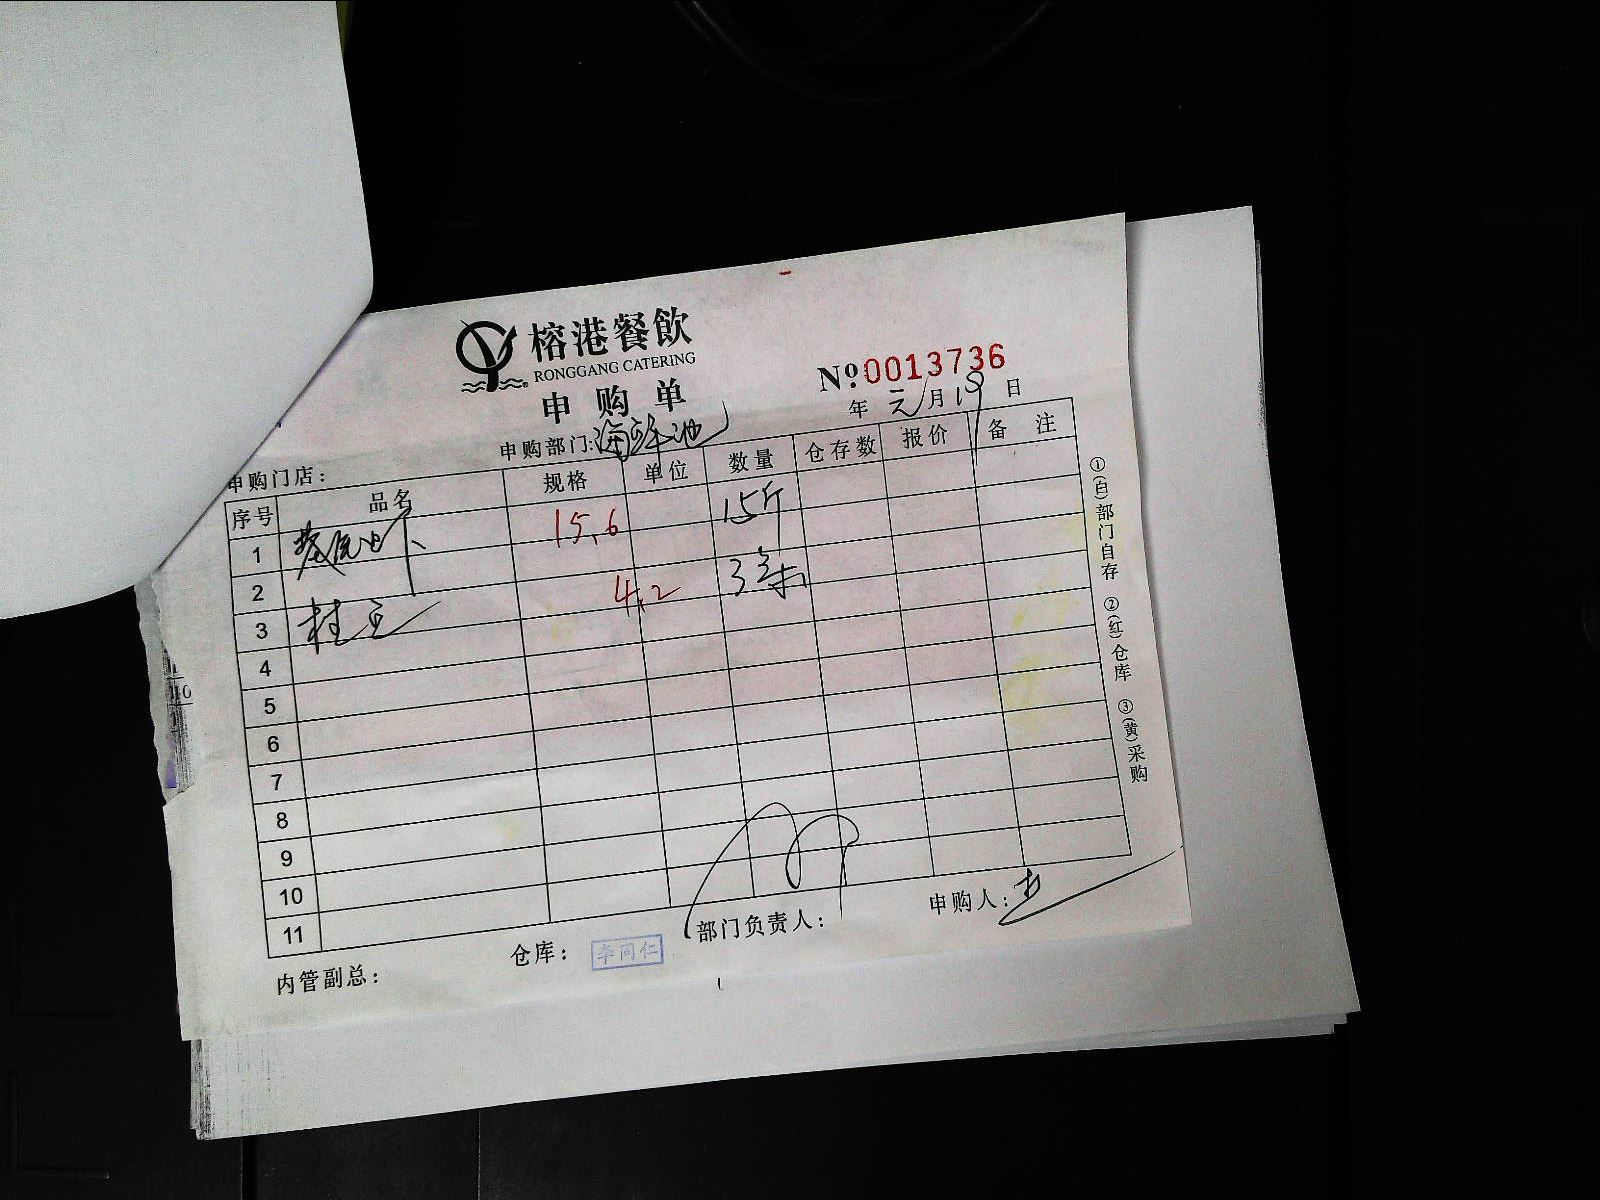 榕港餐飲
RONGGANG CATERING
申购单
№ 0013736
年 元月19日
申购部门: 海鲜池
申购门店:
序号 品名 规格 单位 数量 仓存数 报价 备注
1 15.6 15斤
2 4.2 3条
3
4
5
6
7
8
9
10
11
①(白)部门自存 ②(红)仓库 ③(黄)采购
内管副总: 仓库: 李同仁 部门负责人: 申购人: